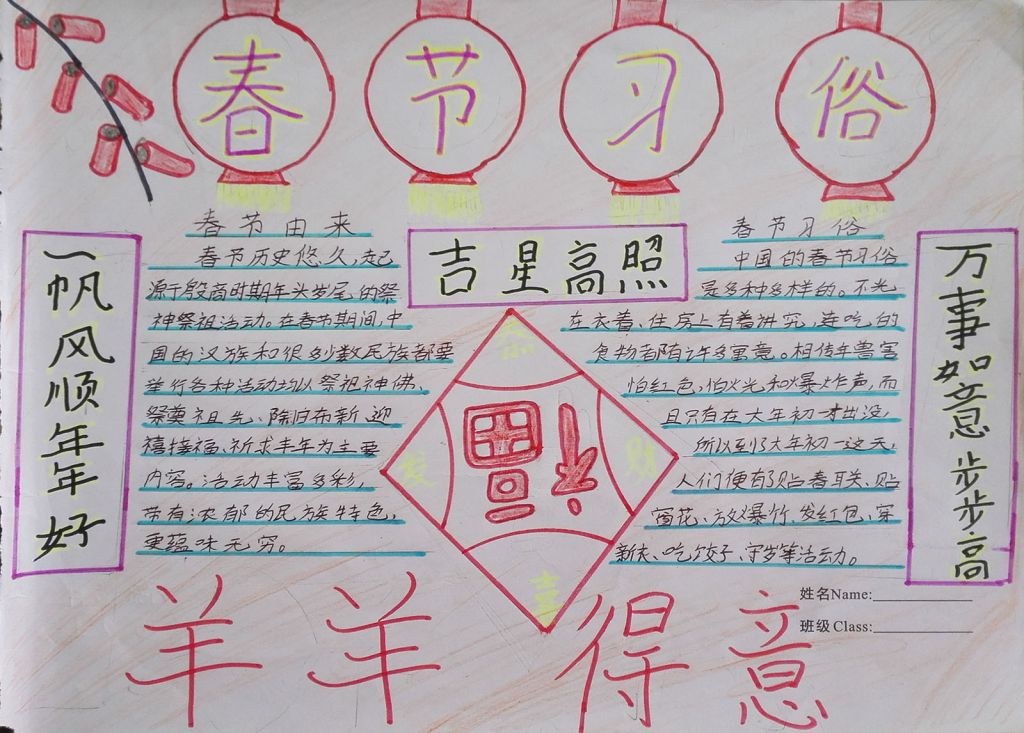 春节习俗
一帆风顺年年好
吉星高照
万事如意步步高
春节由来
春节历史悠久,起
源于殷商时期年头岁尾的祭
神祭祖活动。在春节期间,中
国的汉族和很多少数民族都要
举行各种活动均以祭祖神佛、
祭奠祖先、除旧布新、迎
禧接福、祈求丰年为主要
内容。活动丰富多彩,
带有浓郁的民族特色,
更蕴味无穷。
春节习俗
中国的春节习俗
是多种多样的。不光
在衣着、住房上有着讲究,连吃的
食物都随许多寓意。相传年兽害
怕红色,怕火光和爆炸声,而
且只有在大年初一才出没,
所以至了大年初一这天,
人们便有了贴春联、贴
窗花、放爆竹、发红包、穿
新衣、吃饺子、守岁等活动。
恭
发
财
喜
福
羊羊得意
姓名Name:
班级Class: